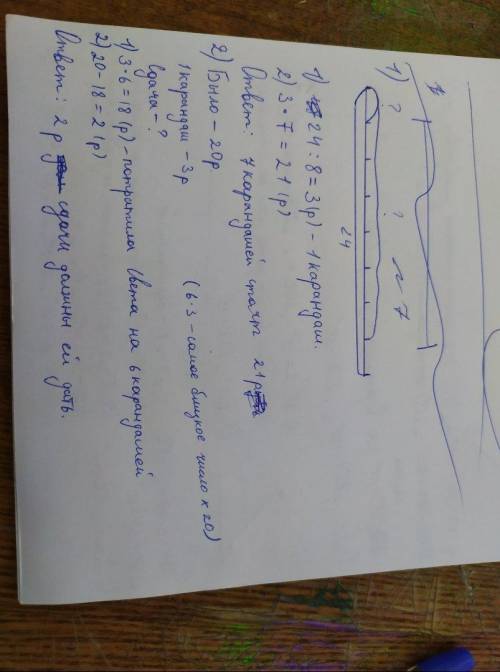 1)
? ? 7
24
1) 24 : 8 = 3 (р) - 1 карандаш.
2) 3 · 7 = 21 (р)
Ответ: 7 карандашей стоят 21р
2) Было - 20р
1 карандаш - 3р (6·3 - самое близкое число к 20)
Сдача - ?
1) 3·6 = 18 (р) - потратила Света на 6 карандашей
2) 20 - 18 = 2 (р)
Ответ: 2р сдачи должны ей дать.